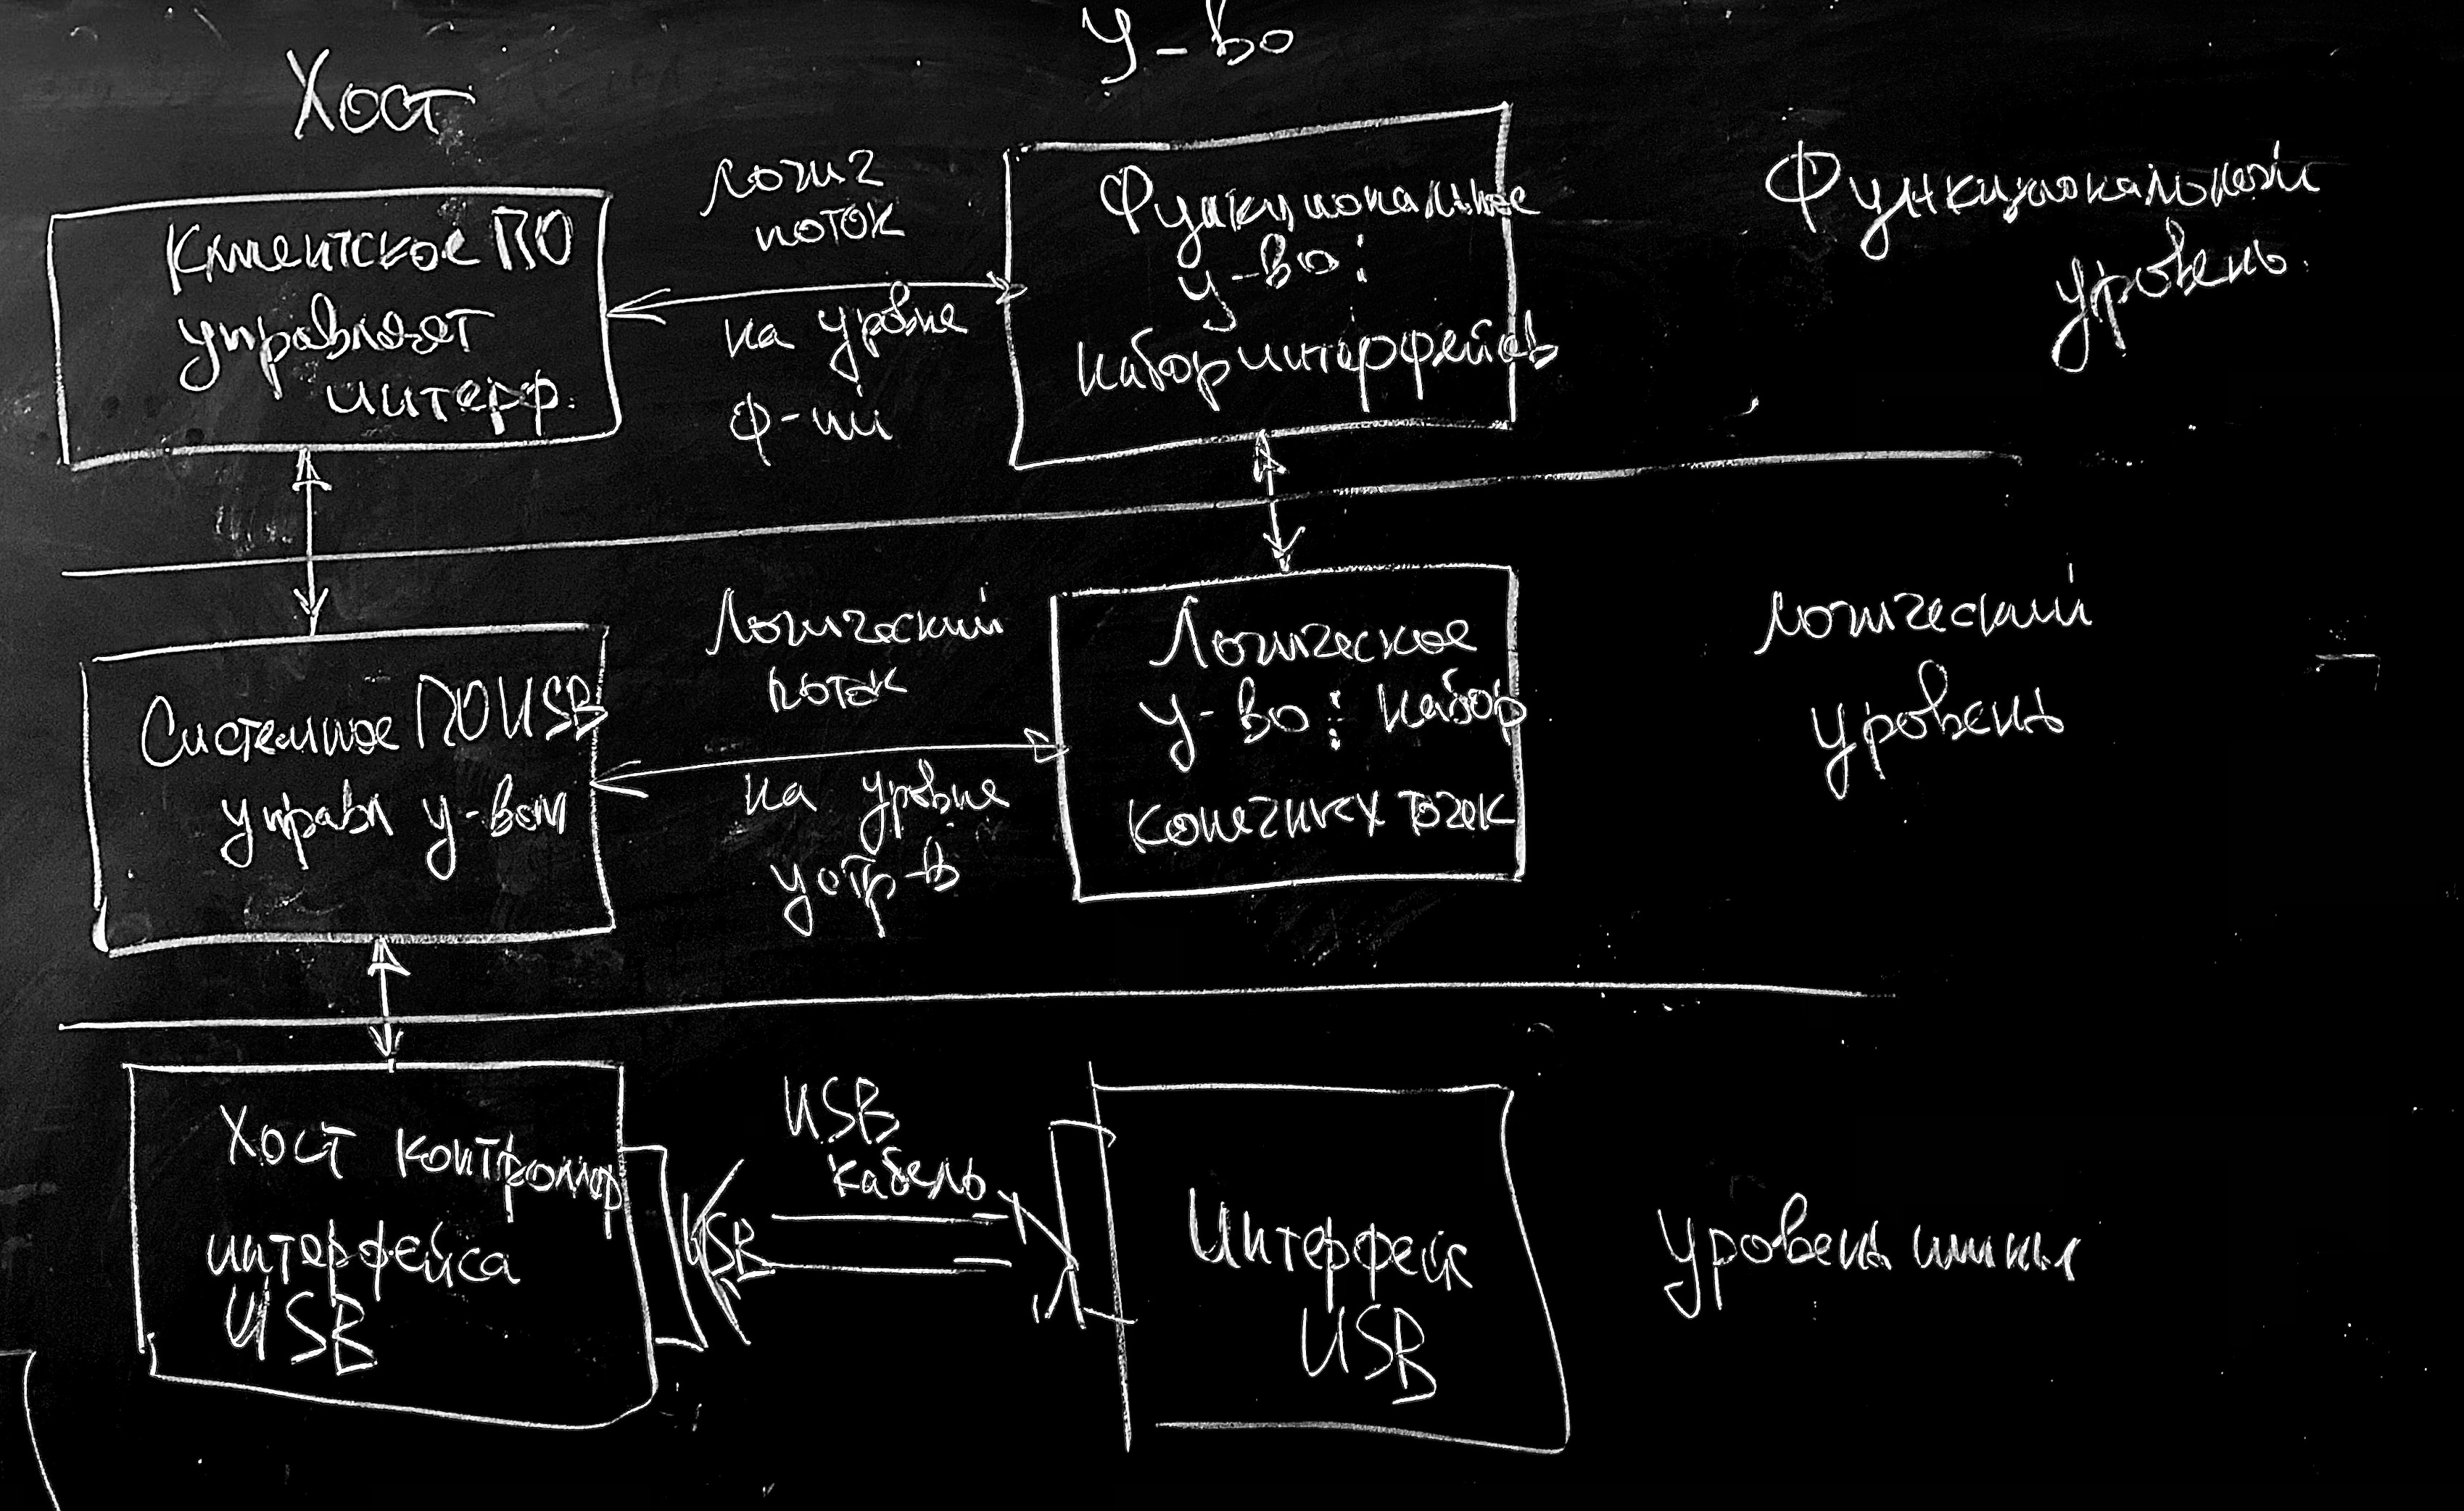 Хост
У-во
Клиентское ПО
управляет
интерф.
логич
поток
на уровне
ф-ий
Функциональное
у-во:
набор интерфейсов
Функциональный
уровень.
Системное ПО USB
управл у-вом
Логический
поток
на уровне
устр-в
Логическое
у-во: набор
конечных точек
логический
уровень
Хост контроллер
интерфейса
USB
USB
USB
кабель
Интерфейс
USB
уровень шины